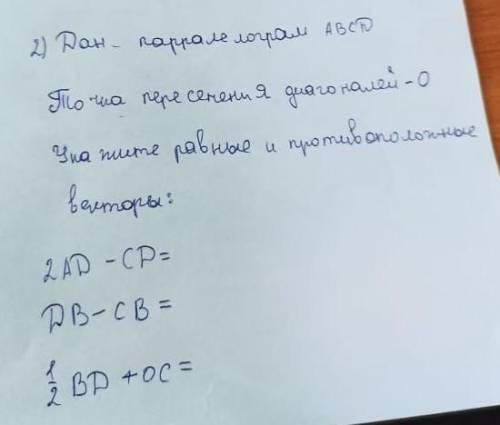 2) Дан - парралелограм ABCD
Точка пересечения диагоналей - О
Укажите равные и противоположные
векторы:
2AD - CD =
DB - CB =
1/2 BD + OC =